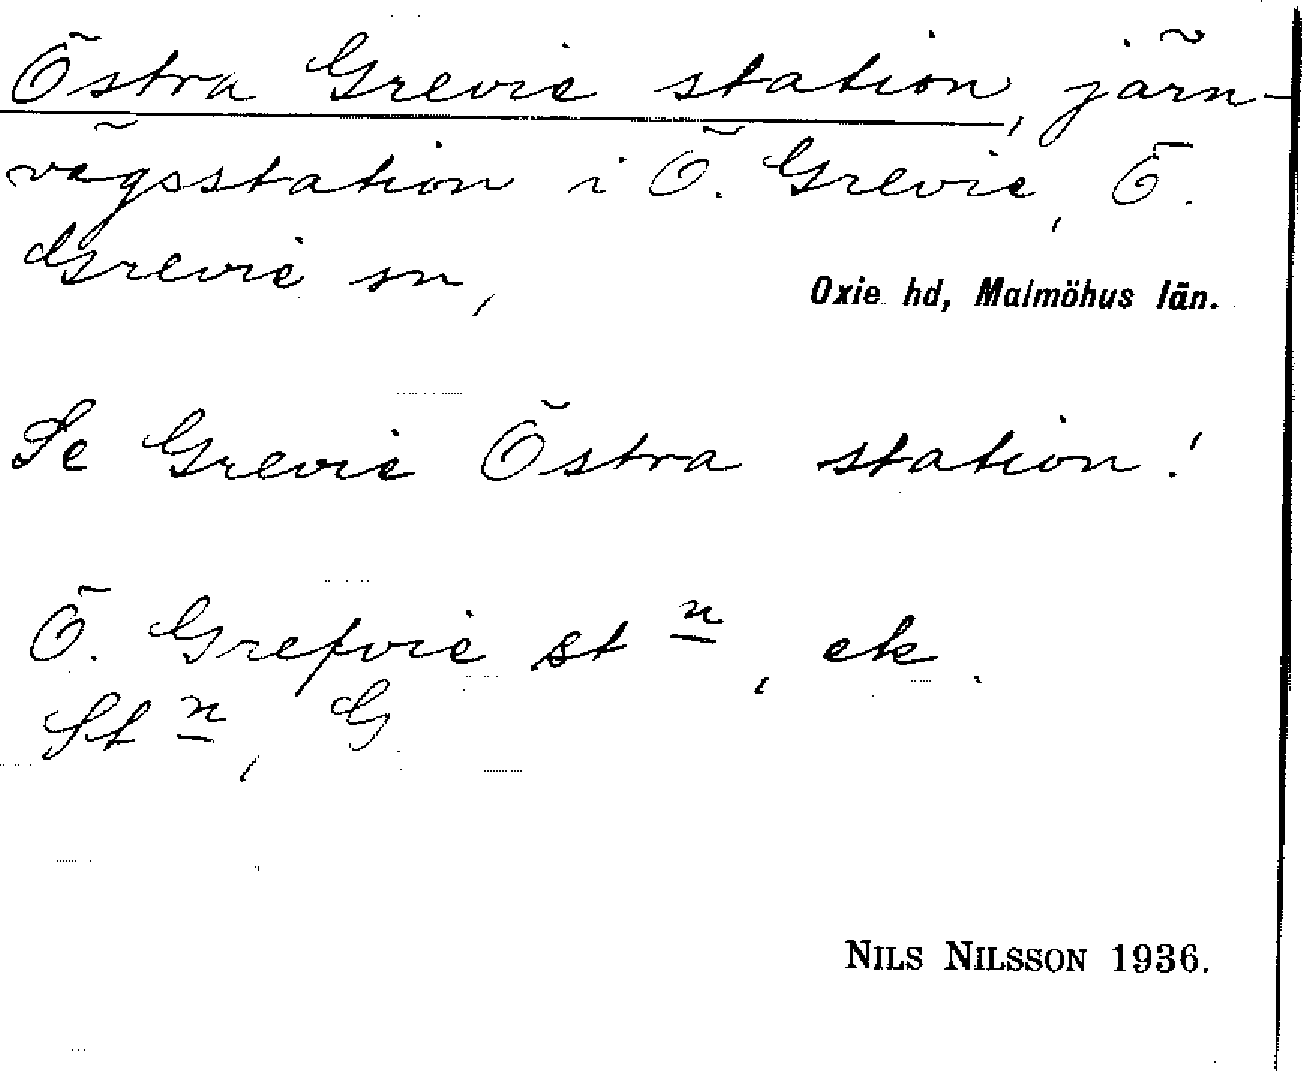 Östra Grevie station, järn-
vägsstation i Ö. Grevie, Ö.
Grevie sn,
Oxie hd, Malmöhus län.
Se Grevie Östra station!
Ö. Grefvie stn, ek.
Stn, G
NILS NILSSON 1936.